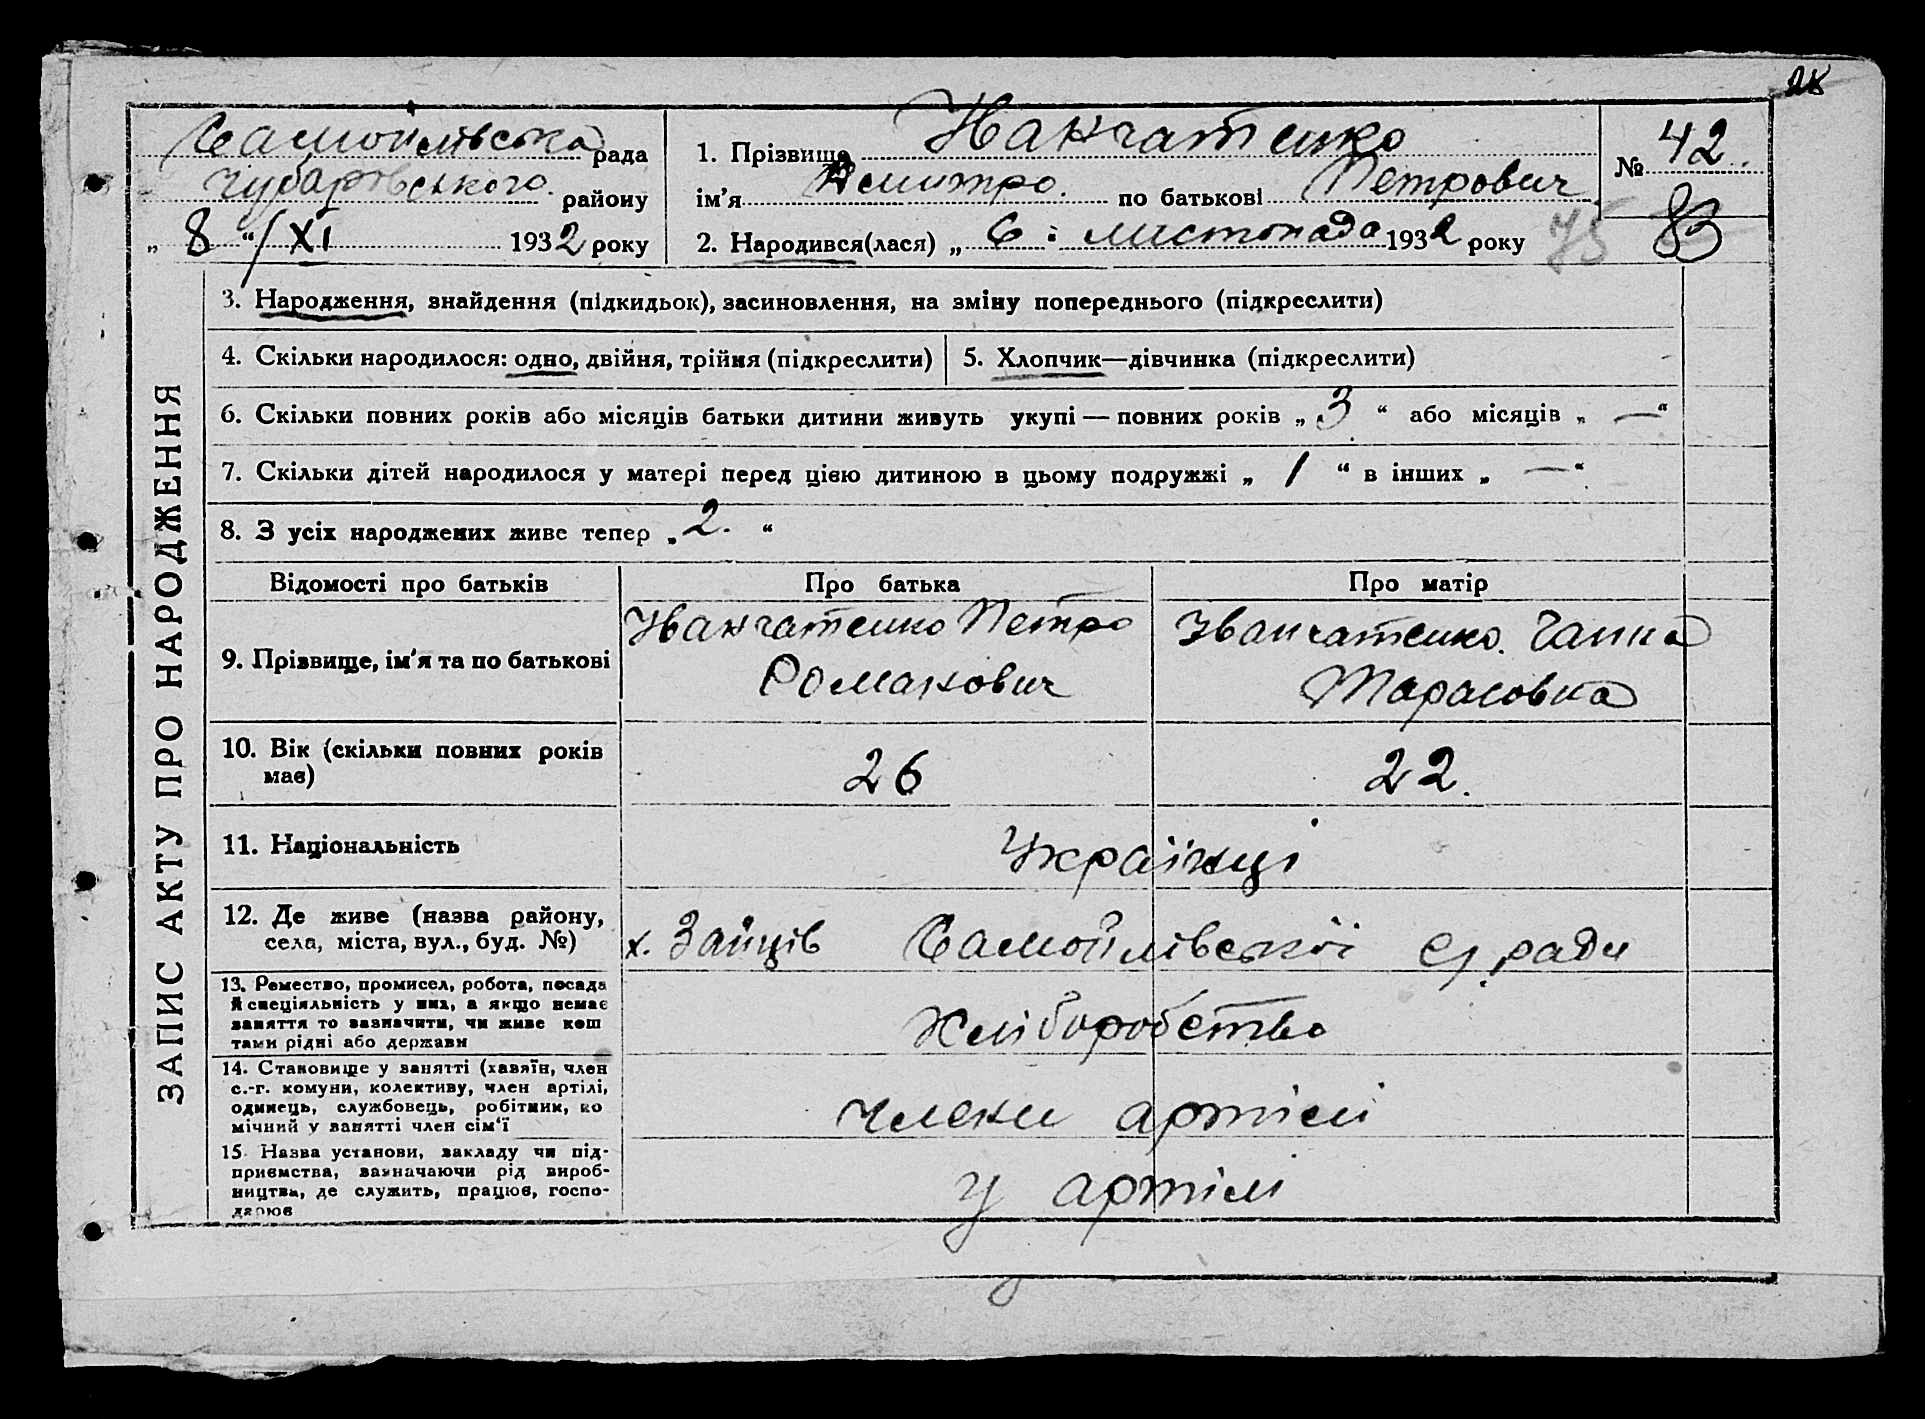 28
Самойлівська рада
Чубарівського району
„ 8 “ / XI 1932 року
1. Прізвище Іванчатенко
ім’я Дмитро. по батькові Петрович
2. Народився(лася) „ 6 : листопада 1932 року
№ 42.
75 83
ЗАПИС АКТУ ПРО НАРОДЖЕННЯ
3. Народження, знайдення (підкидьок), засиновлення, на зміну попереднього (підкреслити)
4. Скільки народилося: одно, двійня, трійня (підкреслити)
5. Хлопчик—дівчинка (підкреслити)
6. Скільки повних років або місяців батьки дитини живуть укупі — повних років „ 3 “ або місяців „ — “
7. Скільки дітей народилося у матері перед цією дитиною в цьому подружжі „ 1 “ в інших „ — “
8. З усіх народжених живе тепер „ 2. “
Відомості про батьків Про батька Про матір
9. Прізвище, ім’я та по батькові
Іванчатенко Петро
Романович
Іванчатенко Ганна
Тарасовна
10. Вік (скільки повних років
має)
26 22.
11. Національність
Українці
12. Де живе (назва району,
села, міста, вул., буд. №)
х. Зайців Самойлівської с/ради
13. Ремество, промисел, робота, посада
й спеціяльність у них, а якщо немає
заняття то зазначити, чи живе кош
тами рідні або держави
Хліборобство
14. Становище у занятті (хазяїн, член
с.-г. комуни, колективу, член артілі,
одинець, службовець, робітник, по
мічний у занятті член сім‘ї
члени артілі
15 Назва установи, закладу чи під-
приємства, зазначаючи рід вироб-
ництва, де служить, працює, госпо-
дарює
у артілі